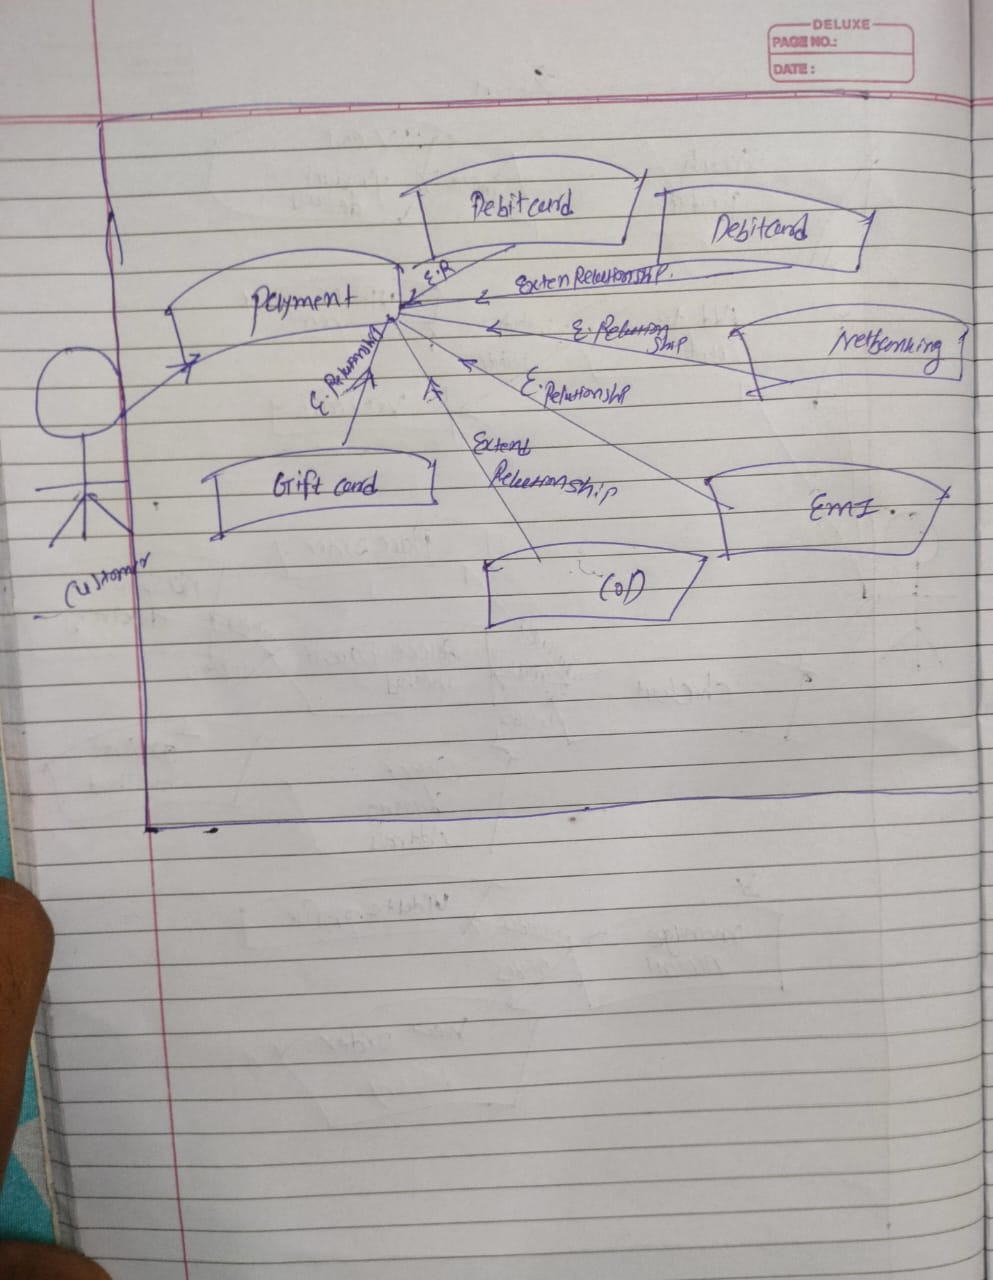 DELUXE
PAGE NO.:
DATE :
Debitcard
Debitcard
Payment
E.R
Exten Relationship.
E. Relation
ship
Netbanking
E. Relationship
E. Relationship
Extend
Relationship
Gift card
EMI
COD
Customer